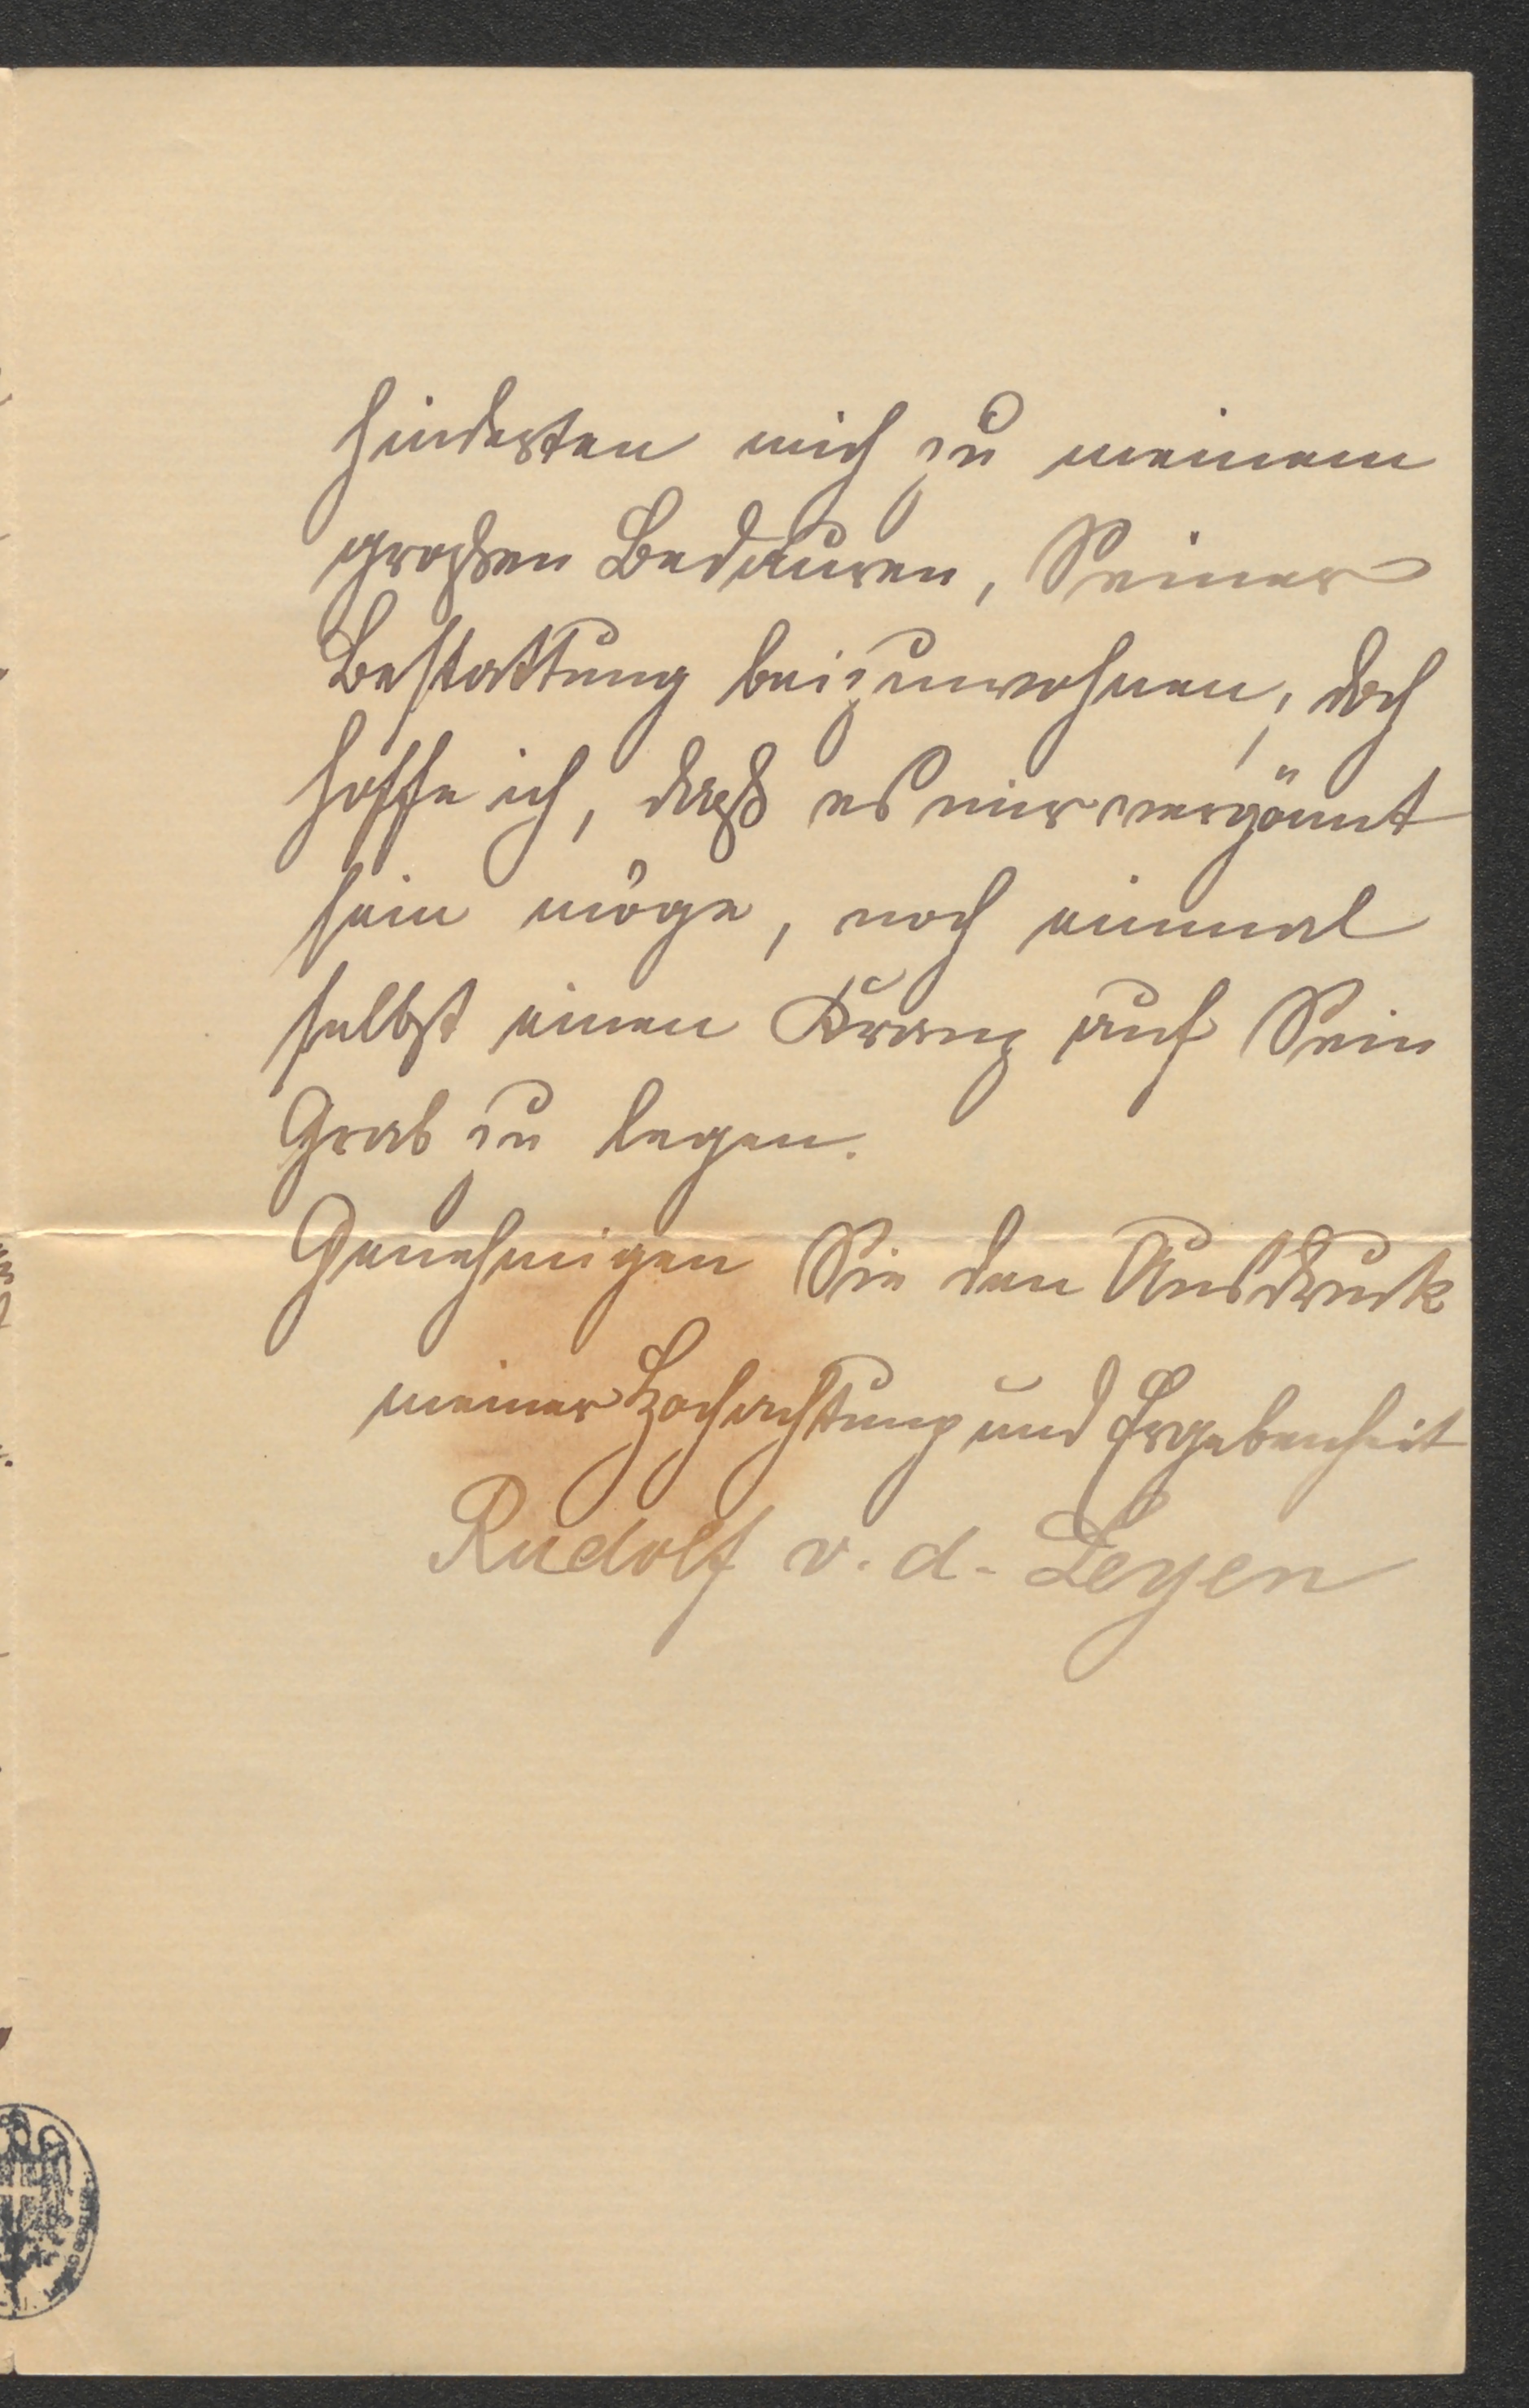 hinderten mich zu meinem
großen Bedauern, Seiner
Bestattung beizuwohnen, doch
hoffe ich, daß es mir vergönnt
sein möge, noch einmal
selbst einen Kranz auf Sein
Grab zu legen.
Genehmigen Sie den Ausdruck
meiner Hochachtung und Ergebenheit
Rudolf v. d. Leyen